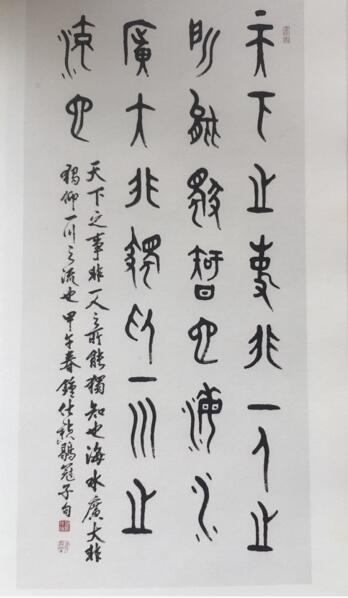 天下之事非一人之
所能獨智也海水
廣大非獨仰一川之
流也
天下之事非一人之所能獨知也海水廣大非
獨仰一川之流也 甲午春鍾仕鶡冠子句